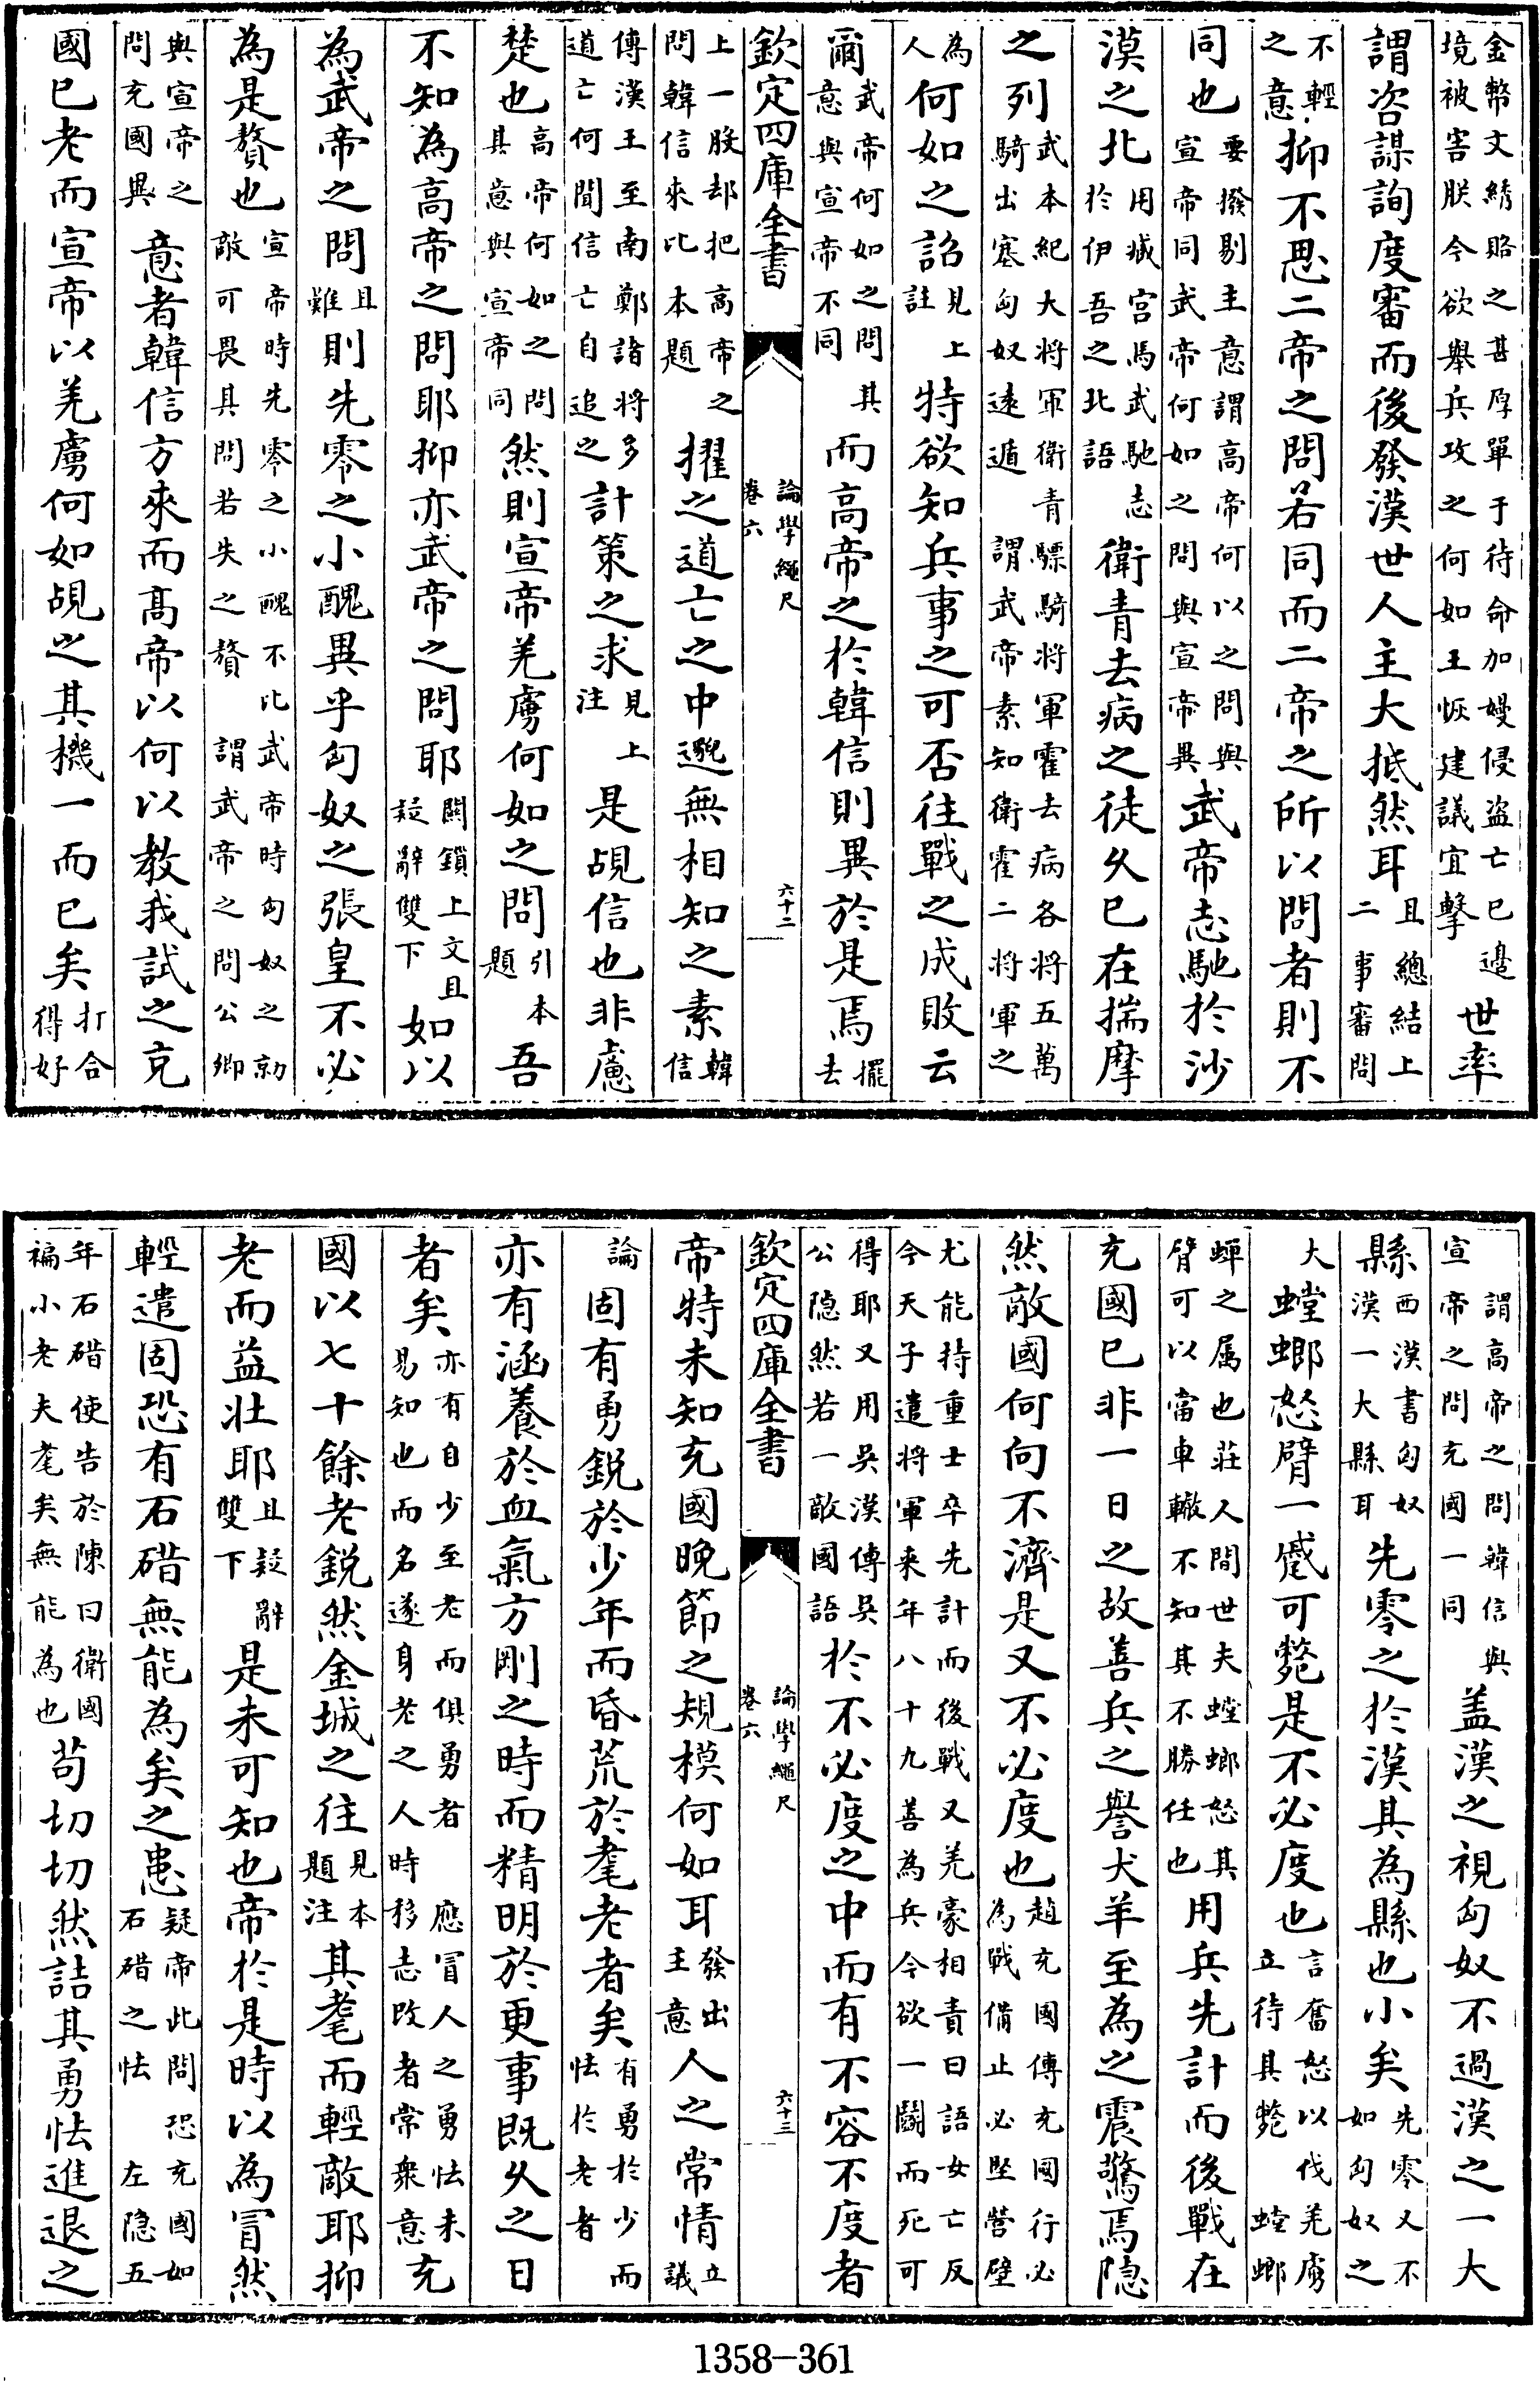 金幣文綉賂之甚厚單于待命加嫚侵盗亡已邉
境被害朕今欲舉兵攻之何如王恢建議宜擊
世率
謂咨謀詢度審而後發漢世人主大抵然耳且總結上
二事審問
不輕
之意抑不思二帝之問若同而二帝之所以問者則不
同也要撥剔主意謂高帝何以之問與
宣帝同武帝何如之問與宣帝異武帝志馳於沙
漠之北用臧宫馬武馳志
於伊吾之北語衛青去病之徒久已在揣摩
之列武本紀大將軍衛青驃騎將軍霍去病各將五萬
騎出塞匈奴逺遁謂武帝素知衛霍二將軍之
為
人何如之詔見上
註特欲知兵事之可否往戰之成敗云
爾武帝何如之問其
意與宣帝不同而高帝之於韓信則異於是焉擺
去
欽定四庫全書 論學繩尺 卷六 六十二
上一股却把高帝之
問韓信來比本題擢之道亡之中邂無相知之素韓
信
傳漢王至南鄭諸將多
道亡何聞信亡自追之計策之求見上
注是覘信也非慮
楚也高帝何如之問
其意與宣帝同然則宣帝羌虜何如之問引本
題吾
不知為高帝之問耶抑亦武帝之問耶關鎖上文且
疑辭雙下如以
為武帝之問且
難則先零之小醜異乎匈奴之張皇不必
為是贅也宣帝時先零之小醜不比武帝時匈奴之勍
敵可畏其問若失之贅謂武帝之問公卿
與宣帝之
問充國異意者韓信方來而髙帝以何以教我試之充
國已老而宣帝以羌虜何如覘之其機一而已矣打合
得好
謂高帝之問韓信與
宣帝之問充國一同盖漢之視匈奴不過漢之一大
縣西漢書匈奴
漢一大縣耳先零之於漢其為縣也小矣先零又不
如匈奴之
大螳螂怒臂一蹙可斃是不必度也言奮怒以伐羌虜
立待其斃螳螂
蟬之属也莊人間世夫螳螂怒其
臂可以當車轍不知其不勝任也用兵先計而後戰在
充國已非一日之故善兵之譽犬羊至為之震驚焉隠
然敵國何向不濟是又不必度也趙充國傳充國行必
為戰備止必堅營壁
尤能持重士卒先計而後戰又羌豪相責曰語女亡反
今天子遣將軍来年八十九善為兵今欲一鬭而死可
得耶又用吳漢傳吳
公隠然若一敵國語於不必度之中而有不容不度者
欽定四庫全書 論學繩尺 卷六 六十三
帝特未知充國晚節之規模何如耳發出
主意人之常情立
議
論固有勇鋭於少年而昏荒於耄老者矣有勇於少而
怯於老者
亦有涵養於血氣方剛之時而精明於更事既久之日
者矣亦有自少至老而俱勇者應冒人之勇怯未
易知也而名遂身老之人時移志改者常衆意充
國以七十餘老鋭然金城之往見本
題注其耄而輕敵耶抑
老而益壯耶且疑辭
雙下是未可知也帝於是時以為冒然
輕遣固恐有石碏無能為矣之患疑帝此問恐充國如
石碏之怯左隠五
年石碏使告於陳曰衛國
褊小老夫耄矣無能為也苟切切然詰其勇怯進退之
1358-361